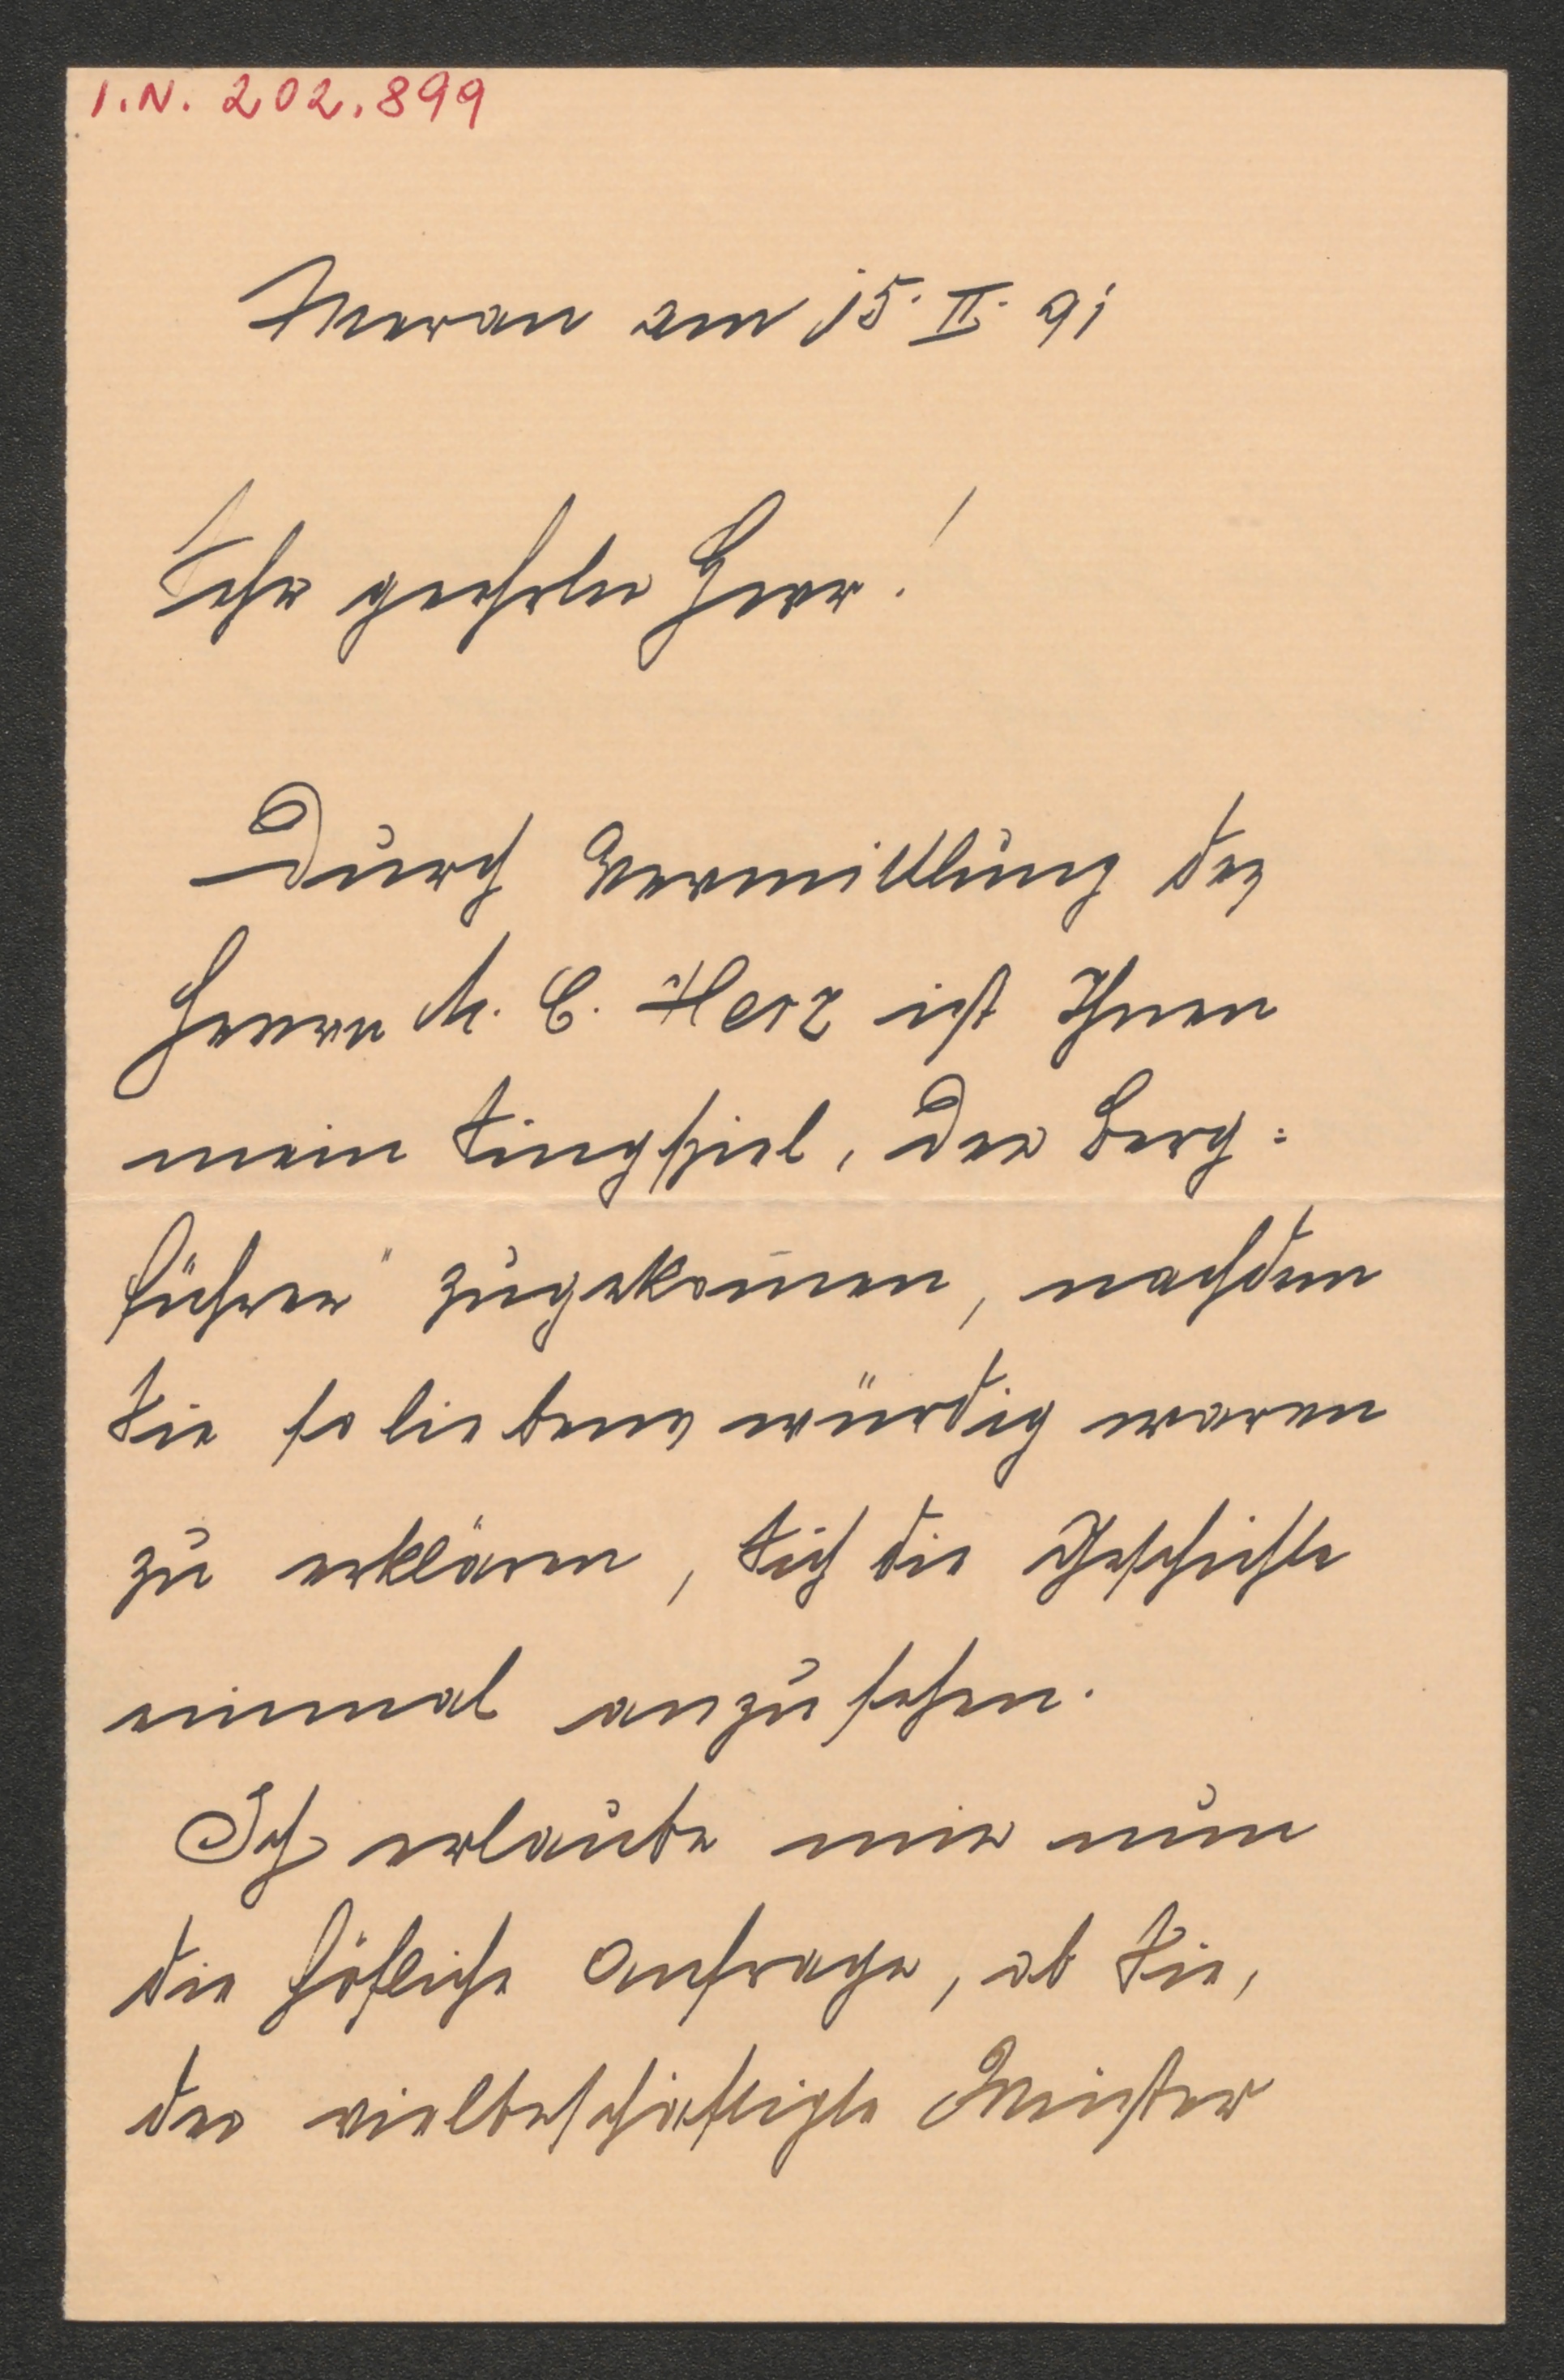 I.N. 202.899
Meran am 15. II. 91
Sehr geehrter Herr!
Durch Vermittlung des
Herrn M. C. Herz ist Ihnen
mein Singspiel, Der Berg=
führer" zugekom̄en, nachdem
Sie so liebenswürdig waren
zu erklären, Sich die Geschichte
einmal anzusehen.
Ich erlaube mir nun
die höfliche Anfrage, ob Sie,
der vielbeschäftigte Meister